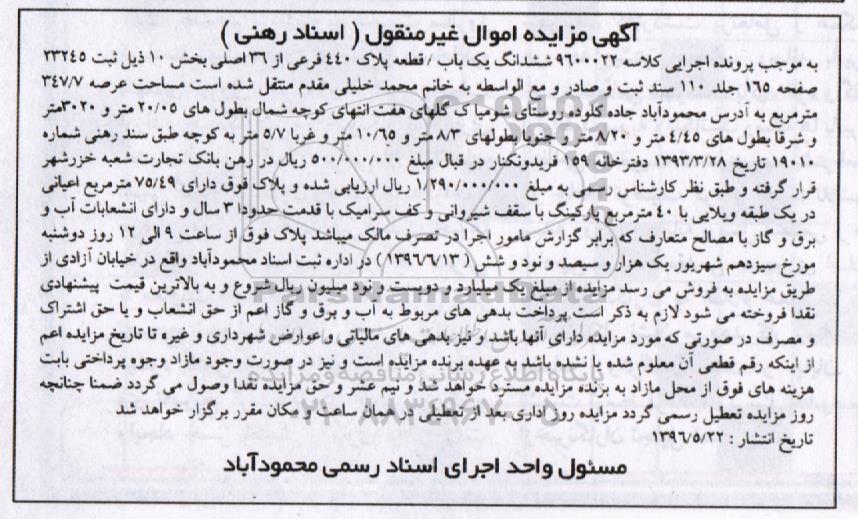 آگهی مزایده اموال غیرمنقول ( اسناد رهنی )
به موجب پرونده اجرایی کلاسه ۹۶۰۰۰۲۲ ششدانگ یک باب / قطعه پلاک ۴۴۰ فرعی از ۳۶ اصلی بخش ۱۰ ذیل ثبت ۲۳۲۴۵
صفحه ۱۶۵ جلد ۱۱۰ سند ثبت و صادر و مع الواسطه به خانم محمد خلیلی مقدم منتقل شده است مساحت عرصه ۳۴۷/۷
مترمربع به آدرس محمودآباد جاده کلوده روستای شومیا ک گلهای هفت انتهای کوچه شمال بطول های ۲۰/۰۵ متر و ۳۰۲۰متر
و شرقا بطول های ۶/۴۵ متر و ۸/۲۰ متر و جنوبا بطولهای ۸/۳ متر و ۱۰/۶۵ متر و غربا ۵/۷ متر به کوچه طبق سند رهنی شماره
۱۹۰۱۰ تاریخ ۱۳۹۳/۳/۲۸ دفترخانه ۱۵۹ فریدونکنار در قبال مبلغ ۵۰۰/۰۰۰/۰۰۰ ریال در رهن بانک تجارت شعبه خزرشهر
قرار گرفته و طبق نظر کارشناس رسمی به مبلغ ۱/۲۹۰/۰۰۰/۰۰۰ ریال ارزیابی شده و پلاک فوق دارای ۷۵/۴۹ مترمربع اعیانی
در یک طبقه ویلایی با ۴۰ مترمربع پارکینگ با سقف شیروانی و کف سرامیک با قدمت حدودا ۳ سال و دارای انشعابات آب و
برق و گاز با مصالح متعارف که برابر گزارش مامور اجرا در تصرف مالک میباشد پلاک فوق از ساعت ۹ الی ۱۲ روز دوشنبه
مورخ سیزدهم شهریور یک هزار و سیصد و نود و شش ( ۱۳۹۶/۶/۱۳ ) در اداره ثبت اسناد محمودآباد واقع در خیابان آزادی از
طریق مزایده به فروش می رسد مزایده از مبلغ یک میلیارد و دویست و نود میلیون ریال شروع و به بالاترین قیمت پیشنهادی
نقدا فروخته می شود لازم به ذکر است پرداخت بدهی های مربوط به آب و برق و گاز اعم از حق انشعاب و یا حق اشتراک
و مصرف در صورتی که مورد مزایده دارای آنها باشد و نیز بدهی های مالیاتی و عوارض شهرداری و غیره تا تاریخ مزایده اعم
از اینکه رقم قطعی آن معلوم شده یا نشده باشد به عهده برنده مزایده است و نیز در صورت وجود مازاد وجوه پرداختی بابت
هزینه های فوق از محل مازاد به برنده مزایده مسترد خواهد شد و نیم عشر و حق مزایده نقدا وصول می گردد ضمنا چنانچه
روز مزایده تعطیل رسمی گردد مزایده روز اداری بعد از تعطیلی در همان ساعت و مکان مقرر برگزار خواهد شد.
تاریخ انتشار : ۱۳۹۶/۵/۲۲
مسئول واحد اجرای اسناد رسمی محمودآباد
ParsNamadData